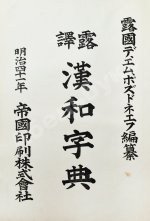 露國デイエムポズドネエフ編纂
露譯
漢和字典
明治四十一年
帝國印刷株式會社